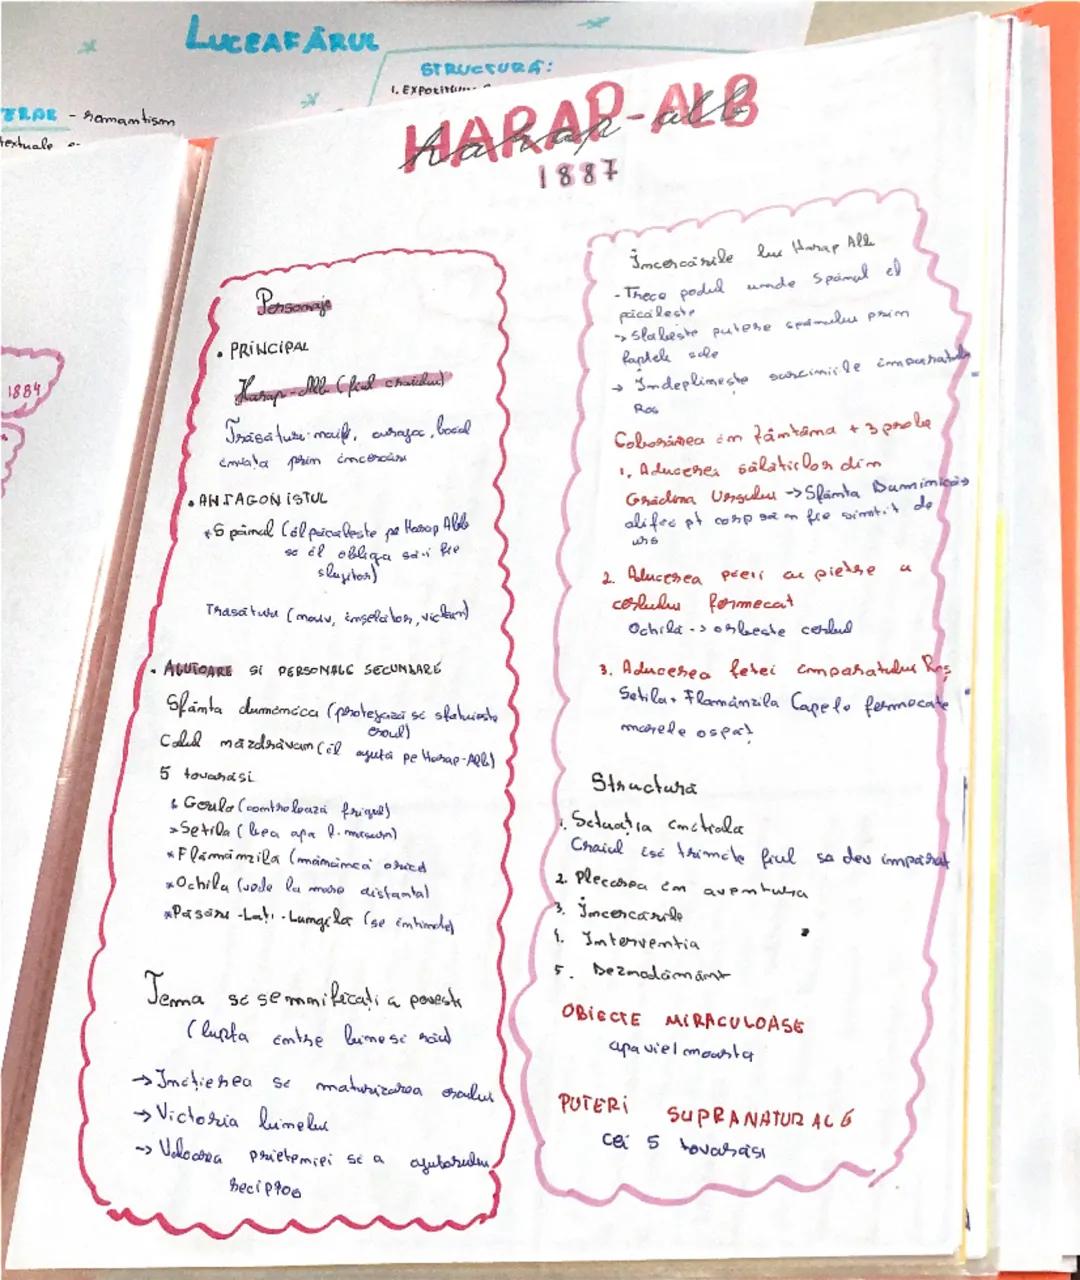 LUCEAFĂRUL
STRUCTURĂ:
- romantism
1884
HARAP-ALB
harap-alb
1887
Personaje
• PRINCIPAL
Harap-Alb (fiul craiului)
Trăsături: naiv, curajos, loial
prin încercări
• ANTAGONISTUL
*Spânul (îl păcălește pe Harap Alb
se îl obliga să-i fie
slujitor)
Trasaturi (malv, inselator, viclean)
• AJUTOARE SI PERSONALE SECUNDARE
Sfânta dumenica (protejează se sfatuieste
eroul)
Calul măzdrăvan (îl ajută pe Harap-Alb)
5 tovarăsi
* Gerila (controlează frigul)
*Setila (bea apa f. mesura)
*Flămânzila (mănâncă orice)
*Ochila (vede la mare distanta)
*Păsări-Lați-Lungila (se intinde)
Tema se semnificați a povesti
(lupta entre bine se rău)
→ Inițierea se maturizarea eroului
→ Victoria binelui
→ Valoarea prieteniei se a ajutorului
reciproc
Încercările lui Harap Alb
- Trece podul unde Spânul el
păcăleste
→ Slabeste putere spânului prin
faptele sale
→ Indeplineste sarcinile imparatului
Ros
Coborârea în fântâna + 3 probe
1. Aducerea sălăților din
Gradina Ursului -> Sfânta Dumminică
de
urs
2. Aducerea pieii cu pietre a
cerbului fermecat
Ochilă -> orbeste cerbul
3. Aducerea fetei imparatului Roș
Setila, Flamânzila Capele fermecate
marele ospaț
Structură
1. Setuatia initiala
Craiul ise trimete fiul sa dev imparat
2. Plecarea în aventura
3. Încercările
4. Interventia
5. Deznodământ
OBIECTE MIRACULOASE
apa vie/moarta
PUTERI SUPRANATURALE
Cei 5 tovarăsi